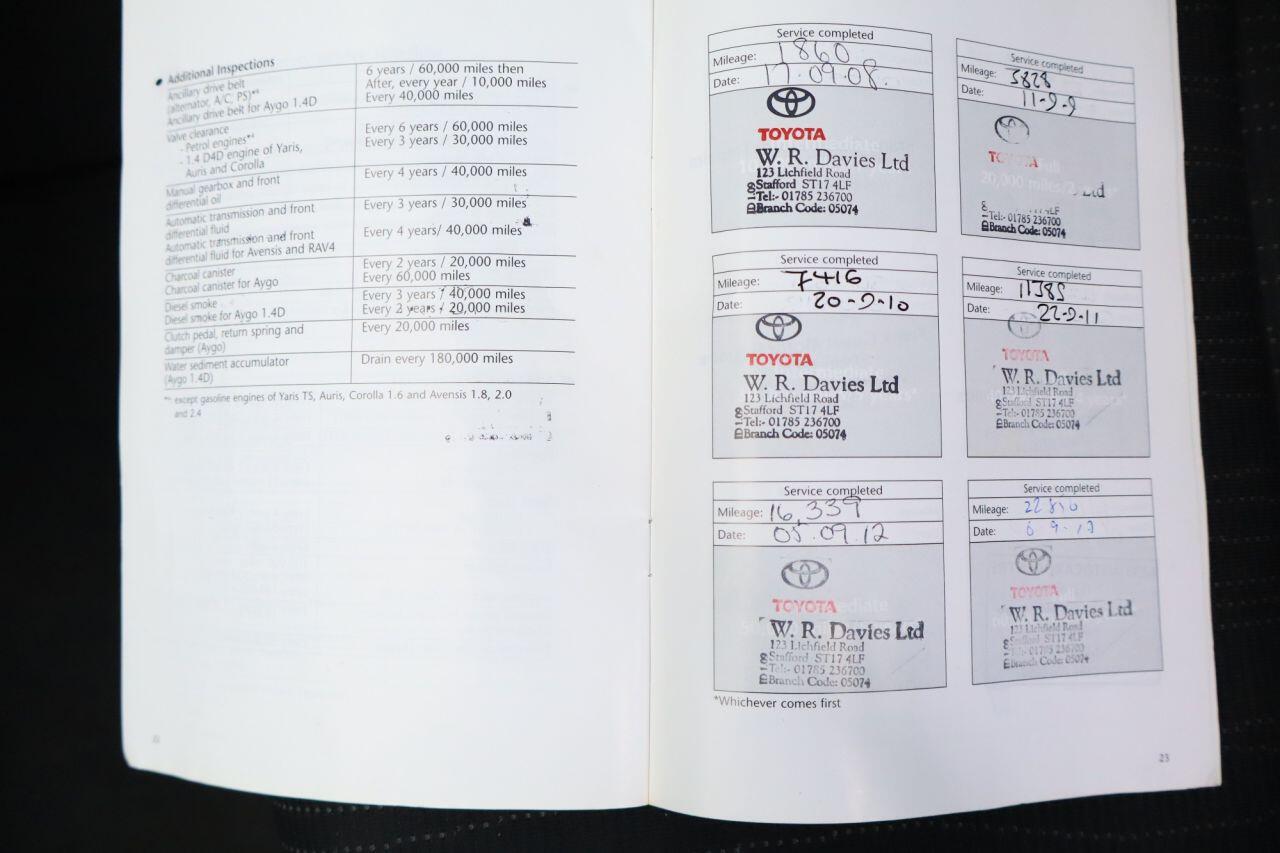 • Additional Inspections
Ancillary drive belt
(alternator, A/C, PS)*¹
6 years / 60,000 miles then
After, every year / 10,000 miles
Ancillary drive belt for Aygo 1.4D
Every 40,000 miles
Valve clearance
- Petrol engines*¹
Every 6 years / 60,000 miles
- 1.4 D4D engine of Yaris,
Auris and Corolla
Every 3 years / 30,000 miles
Manual gearbox and front
differential oil
Every 4 years / 40,000 miles
Automatic transmission and front
differential fluid
Every 3 years / 30,000 miles
Automatic transmission and front
differential fluid for Avensis and RAV4
Every 4 years/ 40,000 miles
Charcoal canister
Every 2 years / 20,000 miles
Charcoal canister for Aygo
Every 60,000 miles
Diesel smoke
Every 3 years / 40,000 miles
Diesel smoke for Aygo 1.4D
Every 2 years / 20,000 miles
Clutch pedal, return spring and
damper (Aygo)
Every 20,000 miles
Water sediment accumulator
(Aygo 1.4D)
Drain every 180,000 miles
except gasoline engines of Yaris TS, Auris, Corolla 1.6 and Avensis 1.8, 2.0
and 2.4
Service completed
Mileage: 1860
Date: 17.09.08.
TOYOTA
W. R. Davies Ltd
123 Lichfield Road
Stafford ST17 4LF
Tel:- 01785 236700
Branch Code: 05074
Service completed
Mileage: 5828
Date: 11-9-9
TOYOTA
20,000 miles/2
Ltd
4LF
Tel:- 01785 236700
Branch Code: 05074
Service completed
Mileage: 7416
Date: 20-9-10
TOYOTA
W. R. Davies Ltd
123 Lichfield Road
Stafford ST17 4LF
Tel:- 01785 236700
Branch Code: 05074
Service completed
Mileage: 11385
Date: 22-9-11
TOYOTA
W. R. Davies Ltd
123 Lichfield Road
Stafford ST17 4LF
Tel:- 01785 236700
Branch Code: 05074
Service completed
Mileage: 16,339
Date: 05.09.12
TOYOTA
W. R. Davies Ltd
123 Lichfield Road
Stafford ST17 4LF
Tel:- 01785 236700
Branch Code: 05074
Service completed
Mileage:
Date:
TOYOTA
W. R. Davies Ltd
123 Lichfield Road
Stafford ST17 4LF
Tel:- 01785 236700
Branch Code: 05074
*Whichever comes first
23